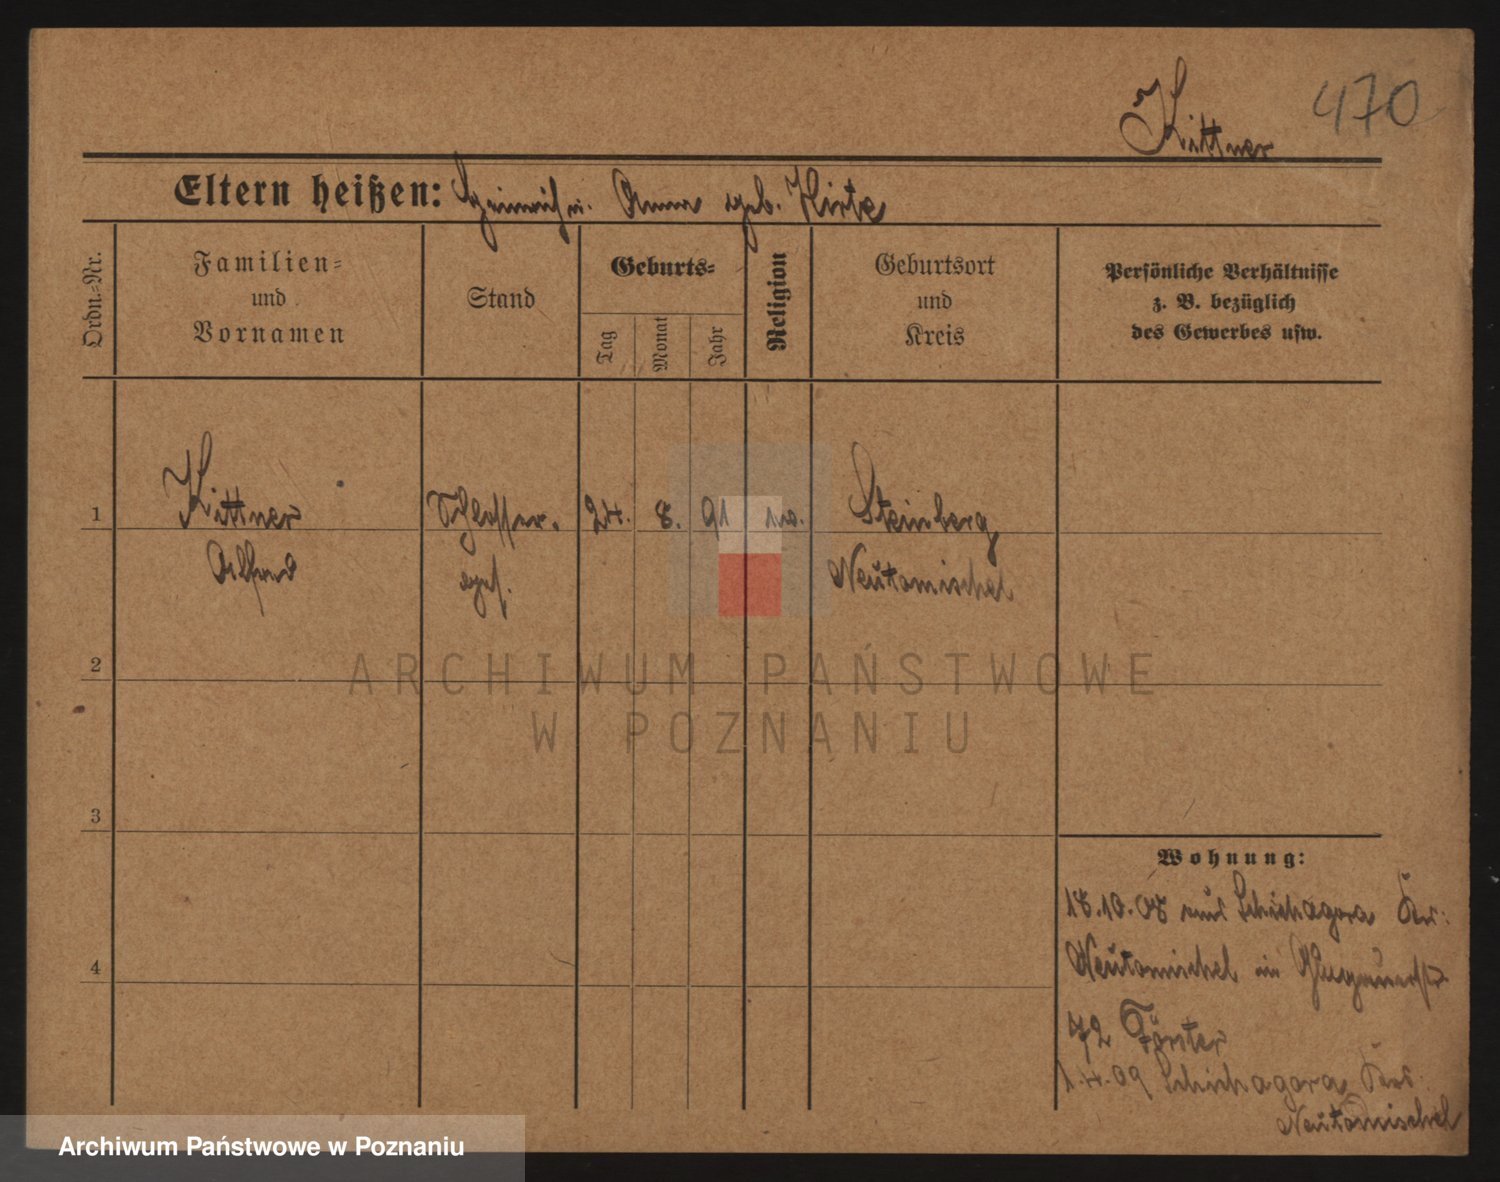 Kittner 470
Eltern heißen: Heinrich u. Anna geb. Kirte
Ordn.=Nr.
Familien=
und
Vornamen
Stand
Geburts=
Tag
Monat
Jahr
Religion
Geburtsort
und
Kreis
Persönliche Verhältnisse
z. B. bezüglich
des Gewerbes usw.
1 Kittner Schlosser- 24. 8. 91 Steinberg
Alfred ges. Neutomischel
2
3
4
Wohnung:
18.10.08 aus Schichagora Krs:
Neutomischel in
72 Förster
1.4.09 Schichagora Krs.
Neutomischel
ARCHIWUM PAŃSTWOWE
W POZNANIU
Archiwum Państwowe w Poznaniu